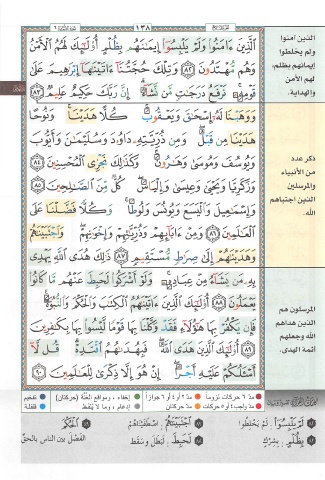 ١٣٨
الَّذِينَ ءَامَنُوا وَلَمْ يَلْبِسُوا إِيمَانَهُم بِظُلْمٍ أُولَٰئِكَ لَهُمُ الْأَمْنُ
وَهُم مُّهْتَدُونَ ٨٢ وَتِلْكَ حُجَّتُنَا ءَاتَيْنَاهَا إِبْرَاهِيمَ عَلَىٰ
قَوْمِهِ نَرْفَعُ دَرَجَاتٍ مَّن نَّشَاءُ إِنَّ رَبَّكَ حَكِيمٌ عَلِيمٌ ٨٣
وَوَهَبْنَا لَهُ إِسْحَاقَ وَيَعْقُوبَ كُلًّا هَدَيْنَا وَنُوحًا
هَدَيْنَا مِن قَبْلُ وَمِن ذُرِّيَّتِهِ دَاوُودَ وَسُلَيْمَانَ وَأَيُّوبَ
وَيُوسُفَ وَمُوسَىٰ وَهَارُونَ وَكَذَٰلِكَ نَجْزِي الْمُحْسِنِينَ ٨٤
وَزَكَرِيَّا وَيَحْيَىٰ وَعِيسَىٰ وَإِلْيَاسَ كُلٌّ مِّنَ الصَّالِحِينَ ٨٥
وَإِسْمَاعِيلَ وَالْيَسَعَ وَيُونُسَ وَلُوطًا وَكُلًّا فَضَّلْنَا عَلَى
الْعَالَمِينَ ٨٦ وَمِنْ ءَابَائِهِمْ وَذُرِّيَّاتِهِمْ وَإِخْوَانِهِمْ وَاجْتَبَيْنَاهُمْ
وَهَدَيْنَاهُمْ إِلَىٰ صِرَاطٍ مُّسْتَقِيمٍ ٨٧ ذَٰلِكَ هُدَى اللَّهِ يَهْدِي
بِهِ مَن يَشَاءُ مِنْ عِبَادِهِ وَلَوْ أَشْرَكُوا لَحَبِطَ عَنْهُم مَّا كَانُوا
يَعْمَلُونَ ٨٨ أُولَٰئِكَ الَّذِينَ ءَاتَيْنَاهُمُ الْكِتَابَ وَالْحُكْمَ وَالنُّبُوَّةَ
فَإِن يَكْفُرْ بِهَا هَٰؤُلَاءِ فَقَدْ وَكَّلْنَا بِهَا قَوْمًا لَّيْسُوا بِهَا بِكَافِرِينَ
٨٩ أُولَٰئِكَ الَّذِينَ هَدَى اللَّهُ فَبِهُدَاهُمُ اقْتَدِهْ قُل لَّا
أَسْأَلُكُمْ عَلَيْهِ أَجْرًا إِنْ هُوَ إِلَّا ذِكْرَىٰ لِلْعَالَمِينَ ٩٠
الذين آمنوا
ولم يخلطوا
إيمانهم بظلم،
لهم الأمن
والهداية.
ذكر عدد
من الأنبياء
والمرسلين
الذين اجتباهم
الله.
المرسلون هم
الذين هداهم
الله وجعلهم
أئمة الهدى.
تفخيم
قلقلة
لَمْ يَلْبِسُوا : لَمْ يَخْلِطُوا
بِظُلْمٍ : بِشِرْكٍ
اجْتَبَيْنَاهُمْ : اصْطَفَيْنَاهُمْ
لَحَبِطَ : لَبَطَلَ وَسَقَطَ
الْحُكْمَ :
الفَصْلَ بين الناس بالحق